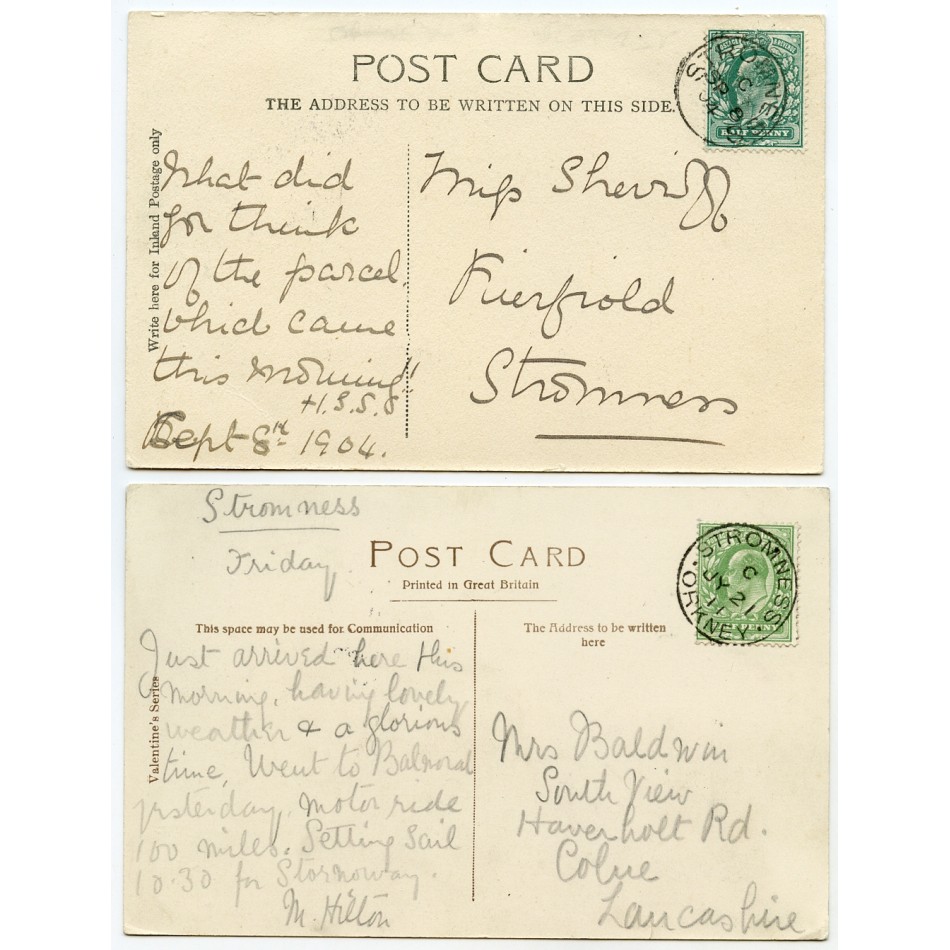 POST CARD
THE ADDRESS TO BE WRITTEN ON THIS SIDE.
Write here for Inland Postage only
What did
you think
of the parcel
which came
this morning!!
H.S.S.
Sept 8th 1904.
Miss Sheriff
Stromness
HALF PENNY
Stromness
Friday
POST CARD
Printed in Great Britain
This space may be used for Communication
The Address to be written
here
Valentine's Series
Just arrived here this
morning, having lovely
weather & a glorious
time, Went to Balmoral
yesterday, motor ride
100 miles. Setting Sail
10.30 for Stornoway.
M. Hilton
STROMNESS
C
JY 21
11
ORKNEY
Mrs Baldwin
South View
Haverholt Rd.
Colne
Lancashire